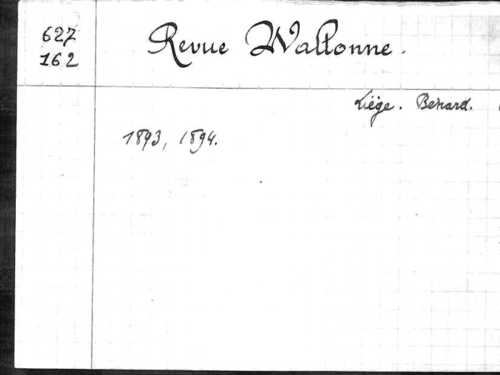 627
162
Revue Wallonne.
Liège. Bénard.
1893, 1894.